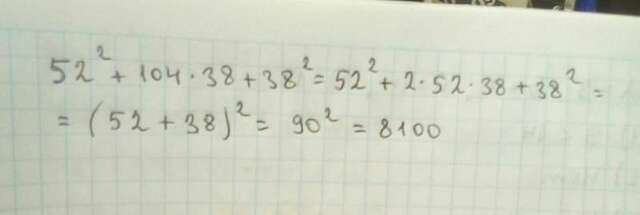 52² + 104 · 38 + 38² = 52² + 2 · 52 · 38 + 38² =
= (52 + 38)² = 90² = 8100